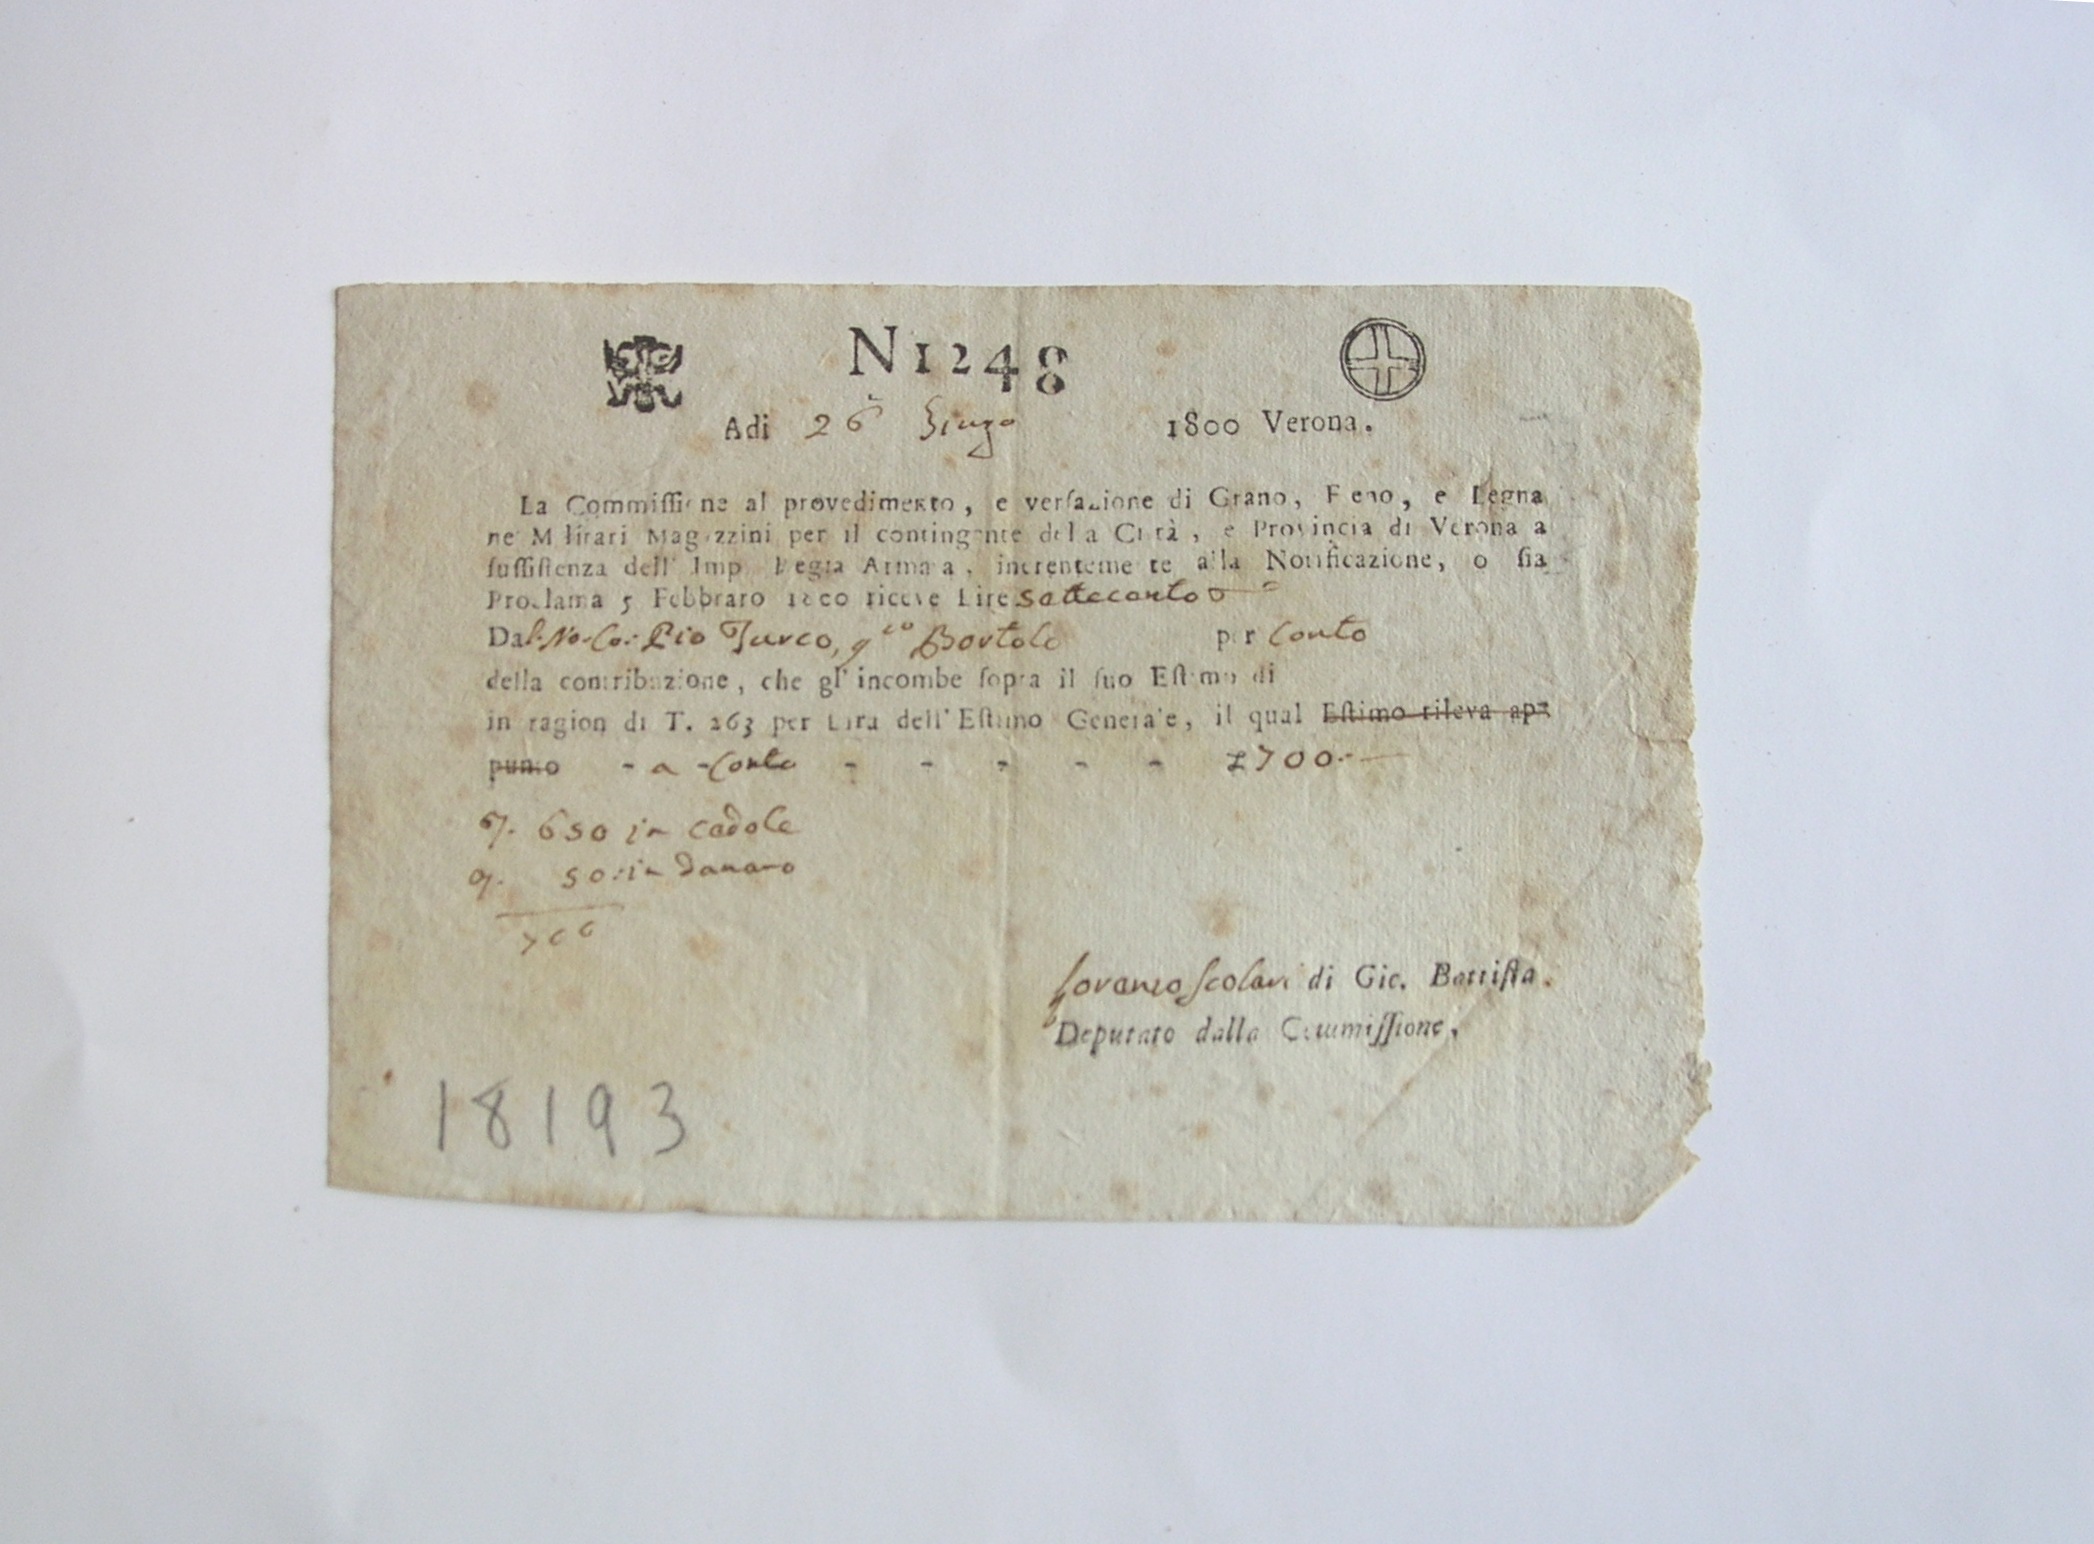 N 1248
Adi 26 Giugo 1800 Verona.
La Commiſſione al provedimento, e verſazione di Grano, Fieno, e Legna
ne' Militari Magazzini per il contingente della Città, e Provincia di Verona a
ſuſſiſtenza dell' Imp. Regia Armata, inerentemente alla Notificazione, o ſia
Proclama 5 Febbraro 1800 riceve Lire settecento
Dal No. Co: Pio Turco, Bortolo per Conto
della contribuzione, che gl' incombe ſopra il ſuo Eſtimo di
in ragion di T. 263 per Lira dell' Eſtimo Generale, il qual Eſtimo rileva ap-
punto - a - Conto - - - - - £700:
650 in cedole
50: in danaro
700
Lorenzo Scolari di Gio. Battiſta.
Deputato dalla Commiſſione.
18193